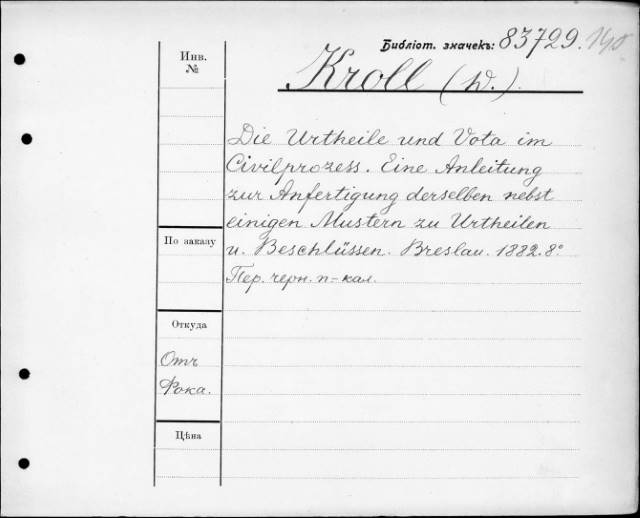 Библіот. значекъ: 83729.
Инв.
№
Kroll (W.).
Die Urtheile und Vota im
Civilprozess. Eine Anleitung
zur Anfertigung derselben nebst
einigen Mustern zu Urtheilen
u. Beschlüssen. Breslau. 1882. 8°
Пер. черн. п-кал.
По заказу
Откуда
Отъ
Фока.
Цѣна